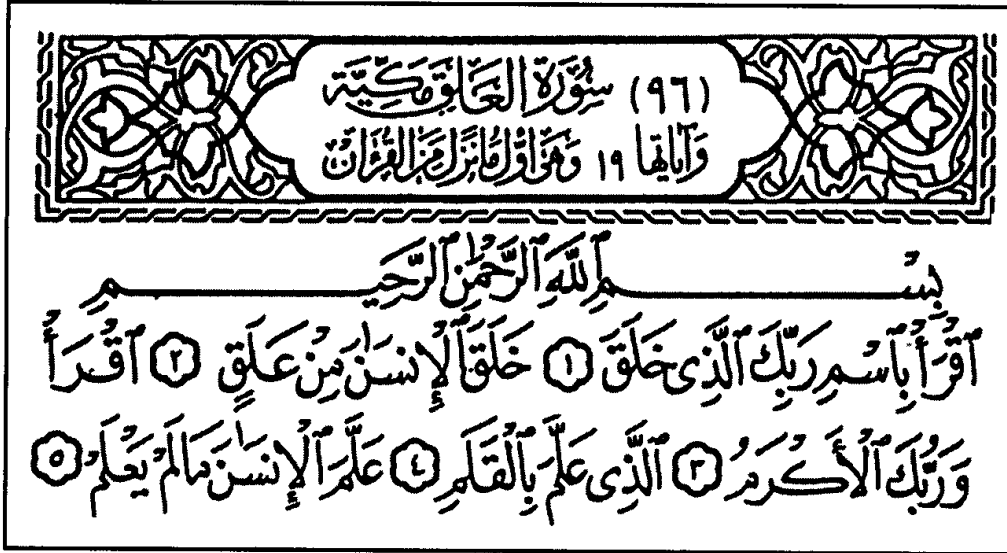 (٩٦) سُورَةُ العَلَقِ مَكِيَّة
وَآيَاتُهَا ١٩ وَهِيَ أَوَّلُ مَا نَزَلَ مِنَ القُرْآنِ
بِسْمِ ٱللَّهِ ٱلرَّحْمَٰنِ ٱلرَّحِيمِ
ٱقْرَأْ بِٱسْمِ رَبِّكَ ٱلَّذِى خَلَقَ ١ خَلَقَ ٱلْإِنسَٰنَ مِنْ عَلَقٍ ٢ ٱقْرَأْ
وَرَبُّكَ ٱلْأَكْرَمُ ٣ ٱلَّذِى عَلَّمَ بِٱلْقَلَمِ ٤ عَلَّمَ ٱلْإِنسَٰنَ مَالَمْ يَعْلَمْ ٥